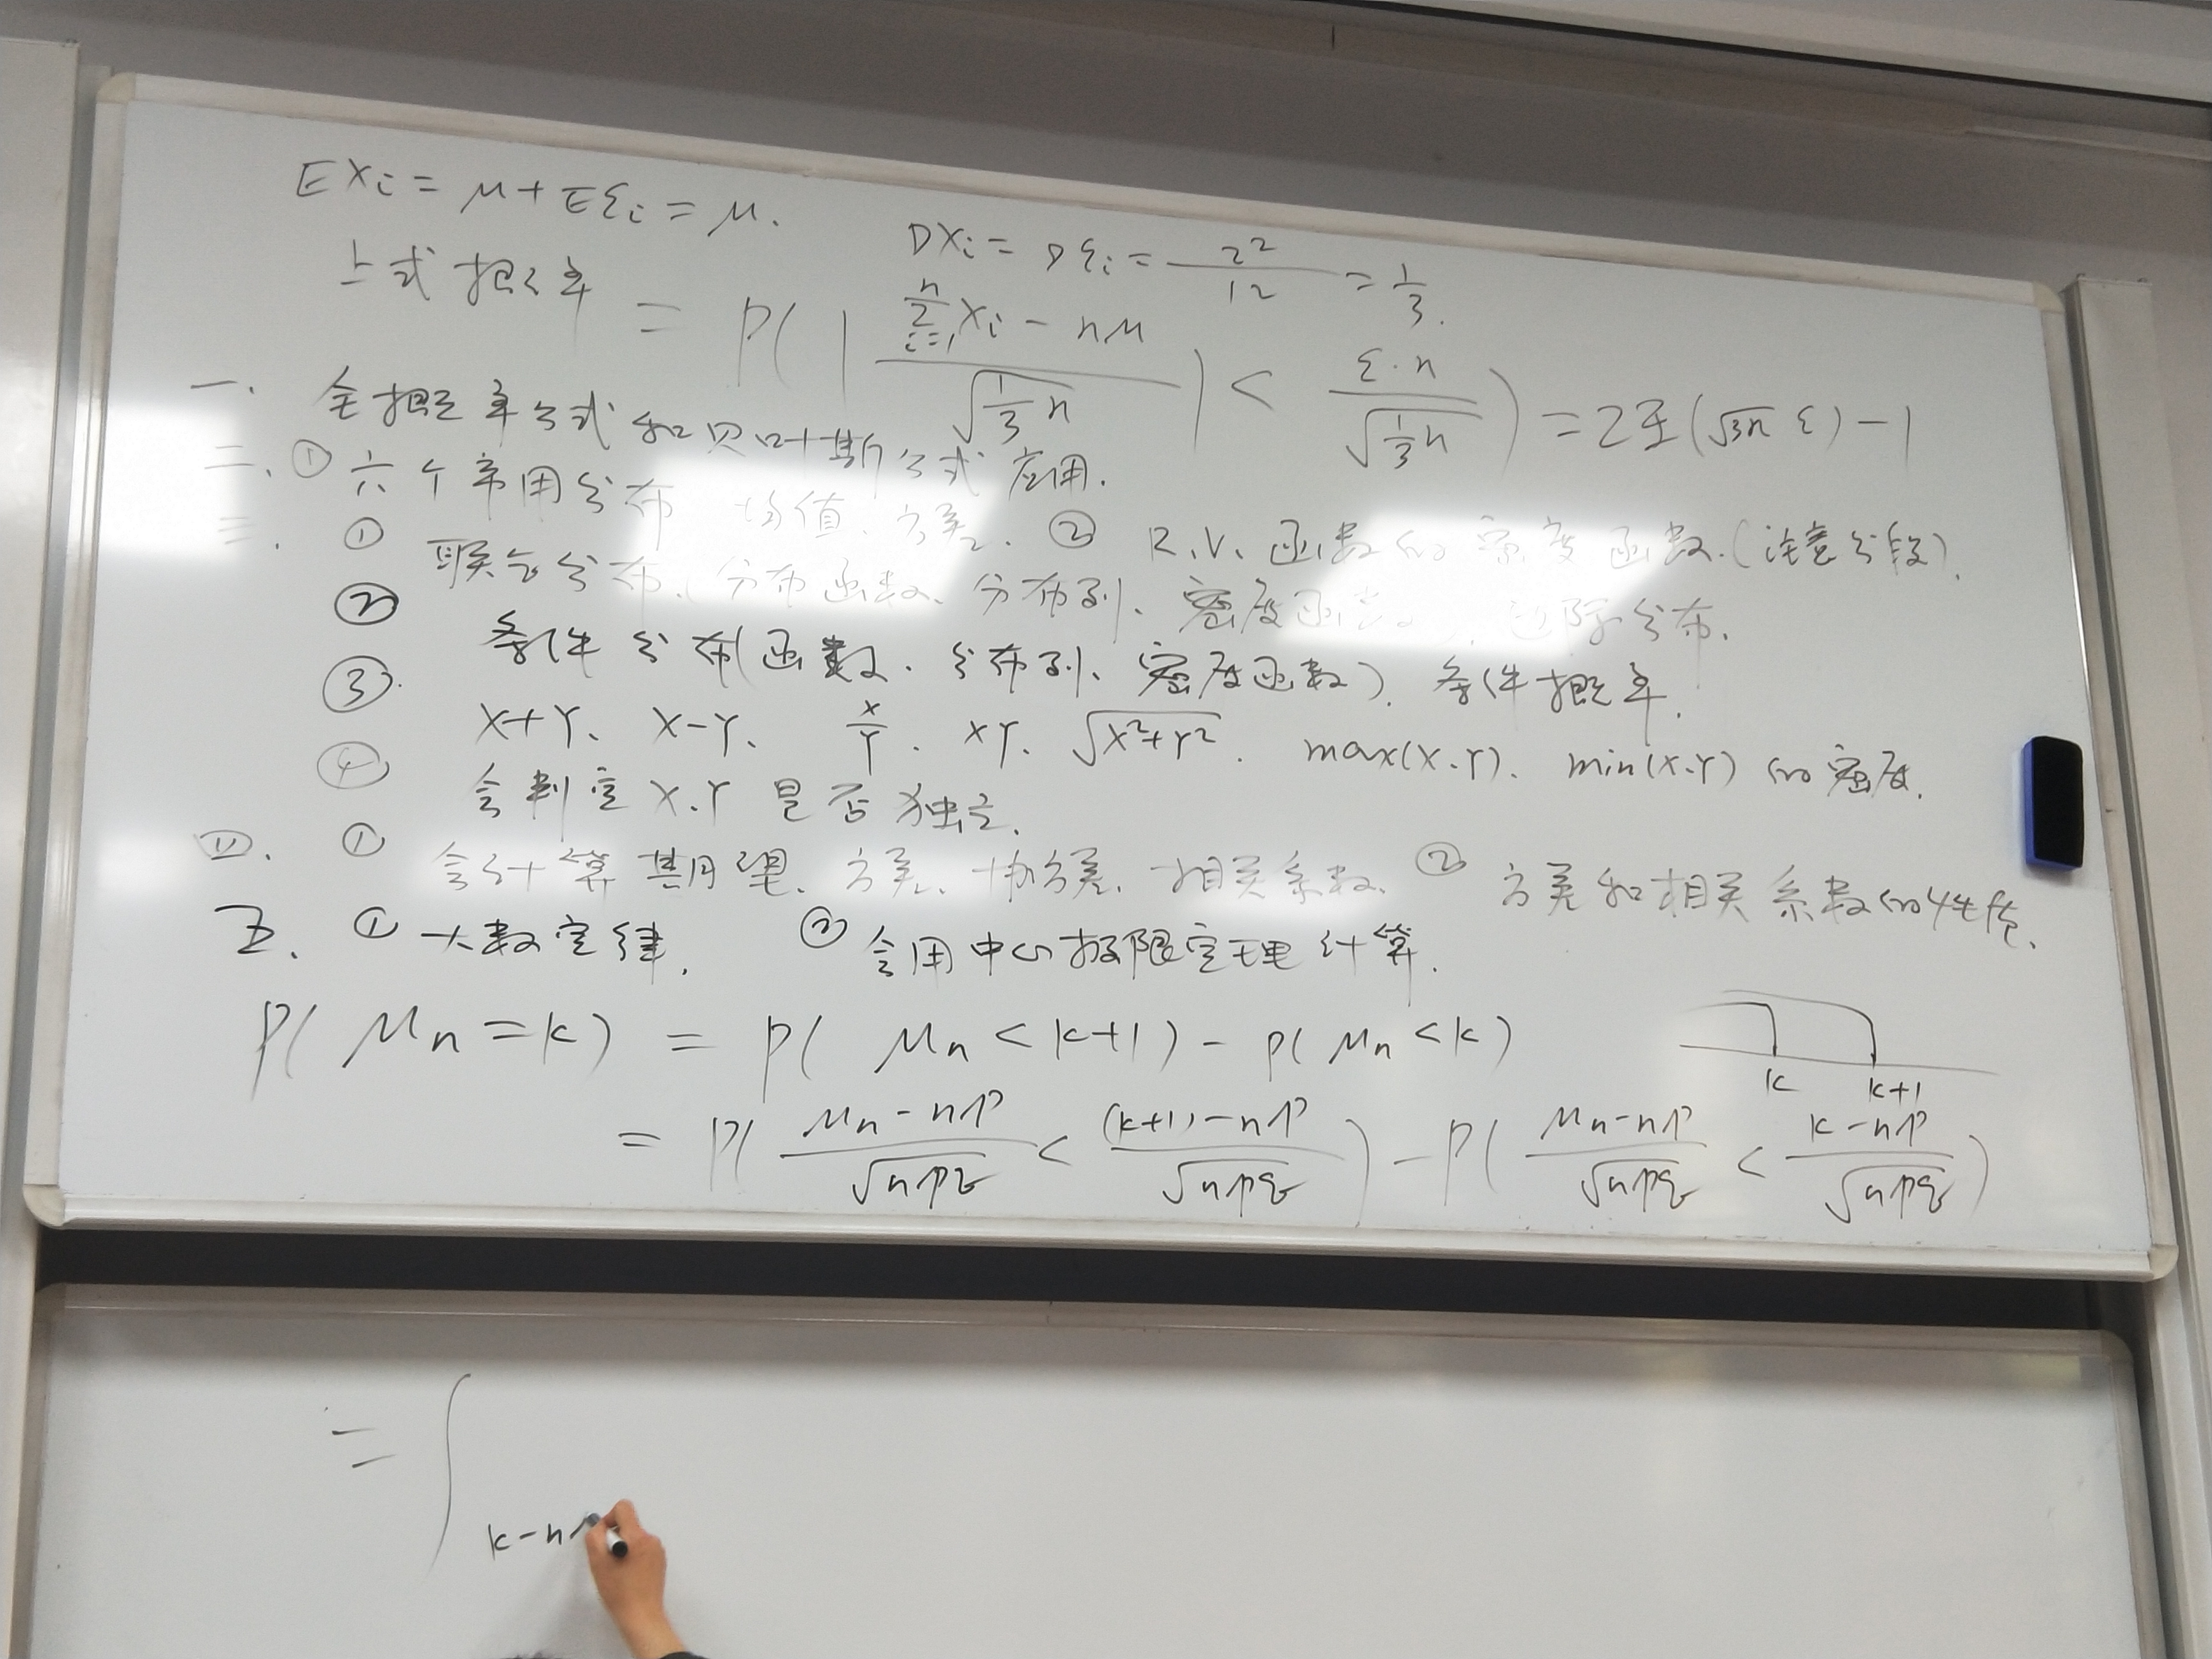 EXi = μ + Eεi = μ.
DXi = Dεi = 2²/12 = 1/3.
上式概率 = P( | (∑_{i=1}^{n} Xi − nμ) / √(1/3 n) | < ε·n / √(1/3 n) ) = 2Φ(√3n ε) − 1
一. 全概率公式和贝叶斯公式应用.
二. ① 六个常用分布 均值、方差. ② R.V. 函数的密度函数.(注意分段).
三. ① 联合分布.(分布函数、分布列、密度函数), 边际分布.
② 条件分布(函数、分布列、密度函数). 条件概率.
③. X+Y、 X−Y、 X/Y . XY. √(X²+Y²) . max(X.Y)、 min(X.Y) 的密度.
④ 会判定 X.Y 是否独立.
四. ① 会计算期望、方差、协方差、相关系数. ② 方差和相关系数的性质.
五. ① 大数定律. ② 会用中心极限定理计算.
P( μn = k) = P( μn < k+1) − P( μn < k)
k k+1
= P( (μn − np)/√npq < ((k+1) − np)/√npq ) − P( (μn − np)/√npq < (k − np)/√npq )
= ∫ k−n